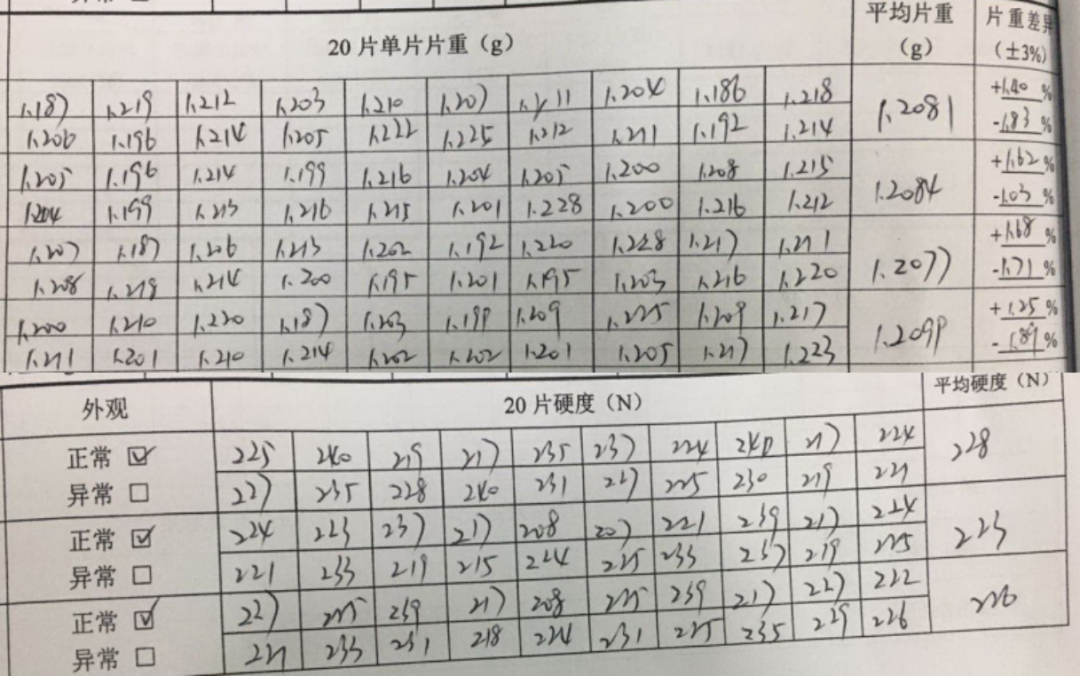 20片单片片重（g） 平均片重（g） 片重差异（±3%）
1.187 1.219 1.212 1.203 1.210 1.207 1.204 1.186 1.218 1.2081 +1.40 %
1.206 1.196 1.214 1.205 1.222 1.225 1.212 1.211 1.192 1.214 -1.83 %
1.205 1.196 1.214 1.199 1.216 1.204 1.205 1.200 1.208 1.215 1.2084 +1.62 %
1.204 1.199 1.213 1.216 1.215 1.201 1.228 1.200 1.216 1.212 -1.03 %
1.207 1.187 1.206 1.213 1.202 1.192 1.220 1.228 1.217 1.211 1.2077 +1.68 %
1.208 1.219 1.214 1.200 1.195 1.201 1.195 1.203 1.216 1.220 -1.71 %
1.200 1.210 1.220 1.187 1.203 1.199 1.209 1.225 1.209 1.217 1.2099 +1.25 %
1.211 1.201 1.210 1.214 1.202 1.202 1.201 1.205 1.217 1.223 -1.89 %
外观 20片硬度（N） 平均硬度（N）
正常 225 240 219 217 235 237 224 240 217 224 228
异常 227 235 228 240 231 227 225 230 219 221
正常 224 223 237 217 208 207 221 239 217 224 223
异常 221 233 219 215 224 225 233 237 219 225
正常 227 225 239 217 208 225 239 217 227 222 226
异常 221 233 231 218 224 231 225 235 229 226